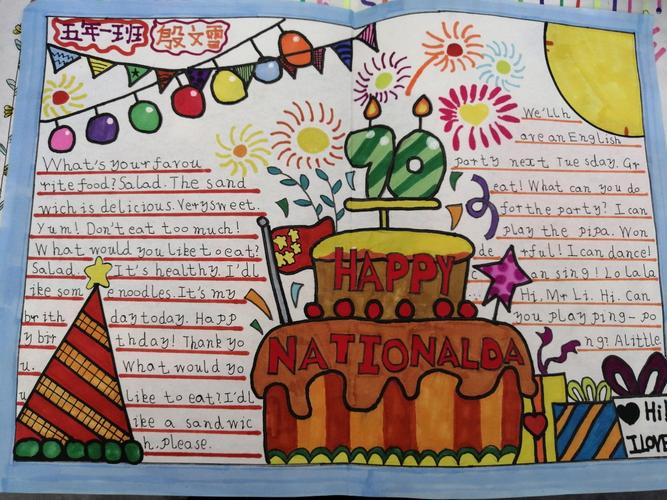 五年一班 殷文雪
What's your favou
rite food? Salad. The sand
wich is delicious. Very sweet.
Yum! Don't eat too much!
What would you like to eat?
Salad. It's healthy. I'dl
ike som e noodles. It's my
bir ith day today. Happ
y bir thday! Thank yo
u. What would yo
like to eat? I'dl
ike a sandwic
h. please.
90
HAPPY
NATIONALDA
We'll h
are an English
party next Tuesday. Gr
eat! What can you do
for the party? I can
play the pipa. Won
de rful! I can dance!
an sing! Lolala
.... Hi, Mr Li. Hi. Can
you play ping-po
ng? A little
Hi!
I LOVE